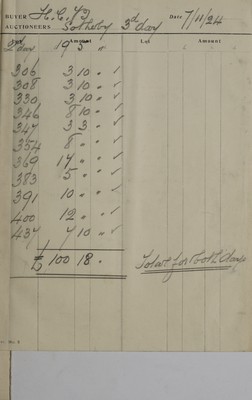 BUYER H.C. 43 Date 7/11/24
AUCTIONEERS Sotheby 3d day
Lot Amount Lot Amount
day 19 5 "
306 3 10 " ✓
308 3 10 " ✓
330 3 10 " ✓
346 8 10 " ✓
347 3 3 " ✓
354 8 " " ✓
369 17 " " ✓
383 5 " " ✓
391 10 " " ✓
400 12 " " ✓
437 7 10 " ✓
£ 100 18 "
for